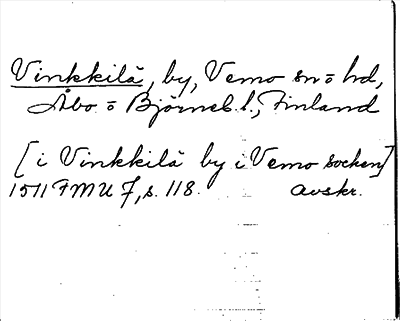 Vinkkilä, by, Vemo sn o hd,
Åbo o Björneb. l., Finland
[i Vinkkilä by i Vemo socken]
1511 FMU 7, s. 118. avskr.